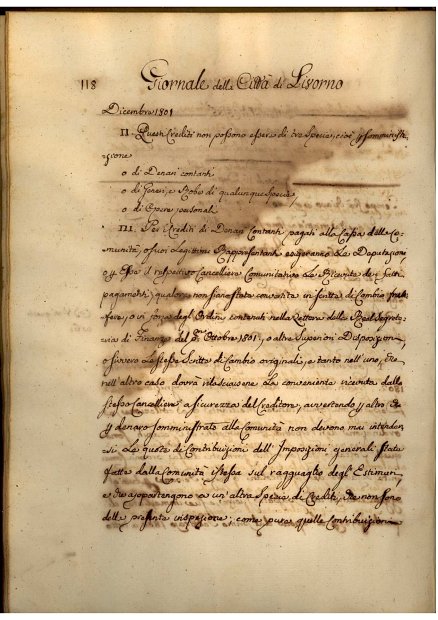 118 Giornale della Città di Livorno
Dicembre 1801
II. Questi Crediti non possono essere di tre Specie, cioè p somministra
zione
o di Denari contanti
o di Generi, e Robe di qualunque Specie
o di Opere personali
III. Per i Crediti di Denari Contanti pagati alla Cassa delle Co=
munità, o suoi legittimi Rappresentanti esigeranno la Deputazione
o p Essa il respettivo Cancelliere Comunitativo le Ricevute dei fatti
pagamenti, qualora non siano state convertite in scritta di Cambio
fere, o in forza degl Ordini contenuti nella Lettera della Real Segrete=
ria di Finanze del Ottobre 1801, o altre Superiori Disposizioni,
o siivvero le stesse Scritte di Cambio originali, e tanto nell'uno, che
nell'altro caso dovrà rilasciarsene la conveniente ricevuta dallo
stesso Cancelliere a sicurezza del Creditore, avvertendo p altro che
p denaro somministrato alle Comunità non devono mai intender
si le quote di Contribuzioni dell'Imposizioni generali state
fatte dalla Comunità istessa sul ragguaglio degl'Estimi,
e che appartengono a un'altra Specie di Crediti, che non sono
della presente ispezione, come pure quelle Contribuzioni